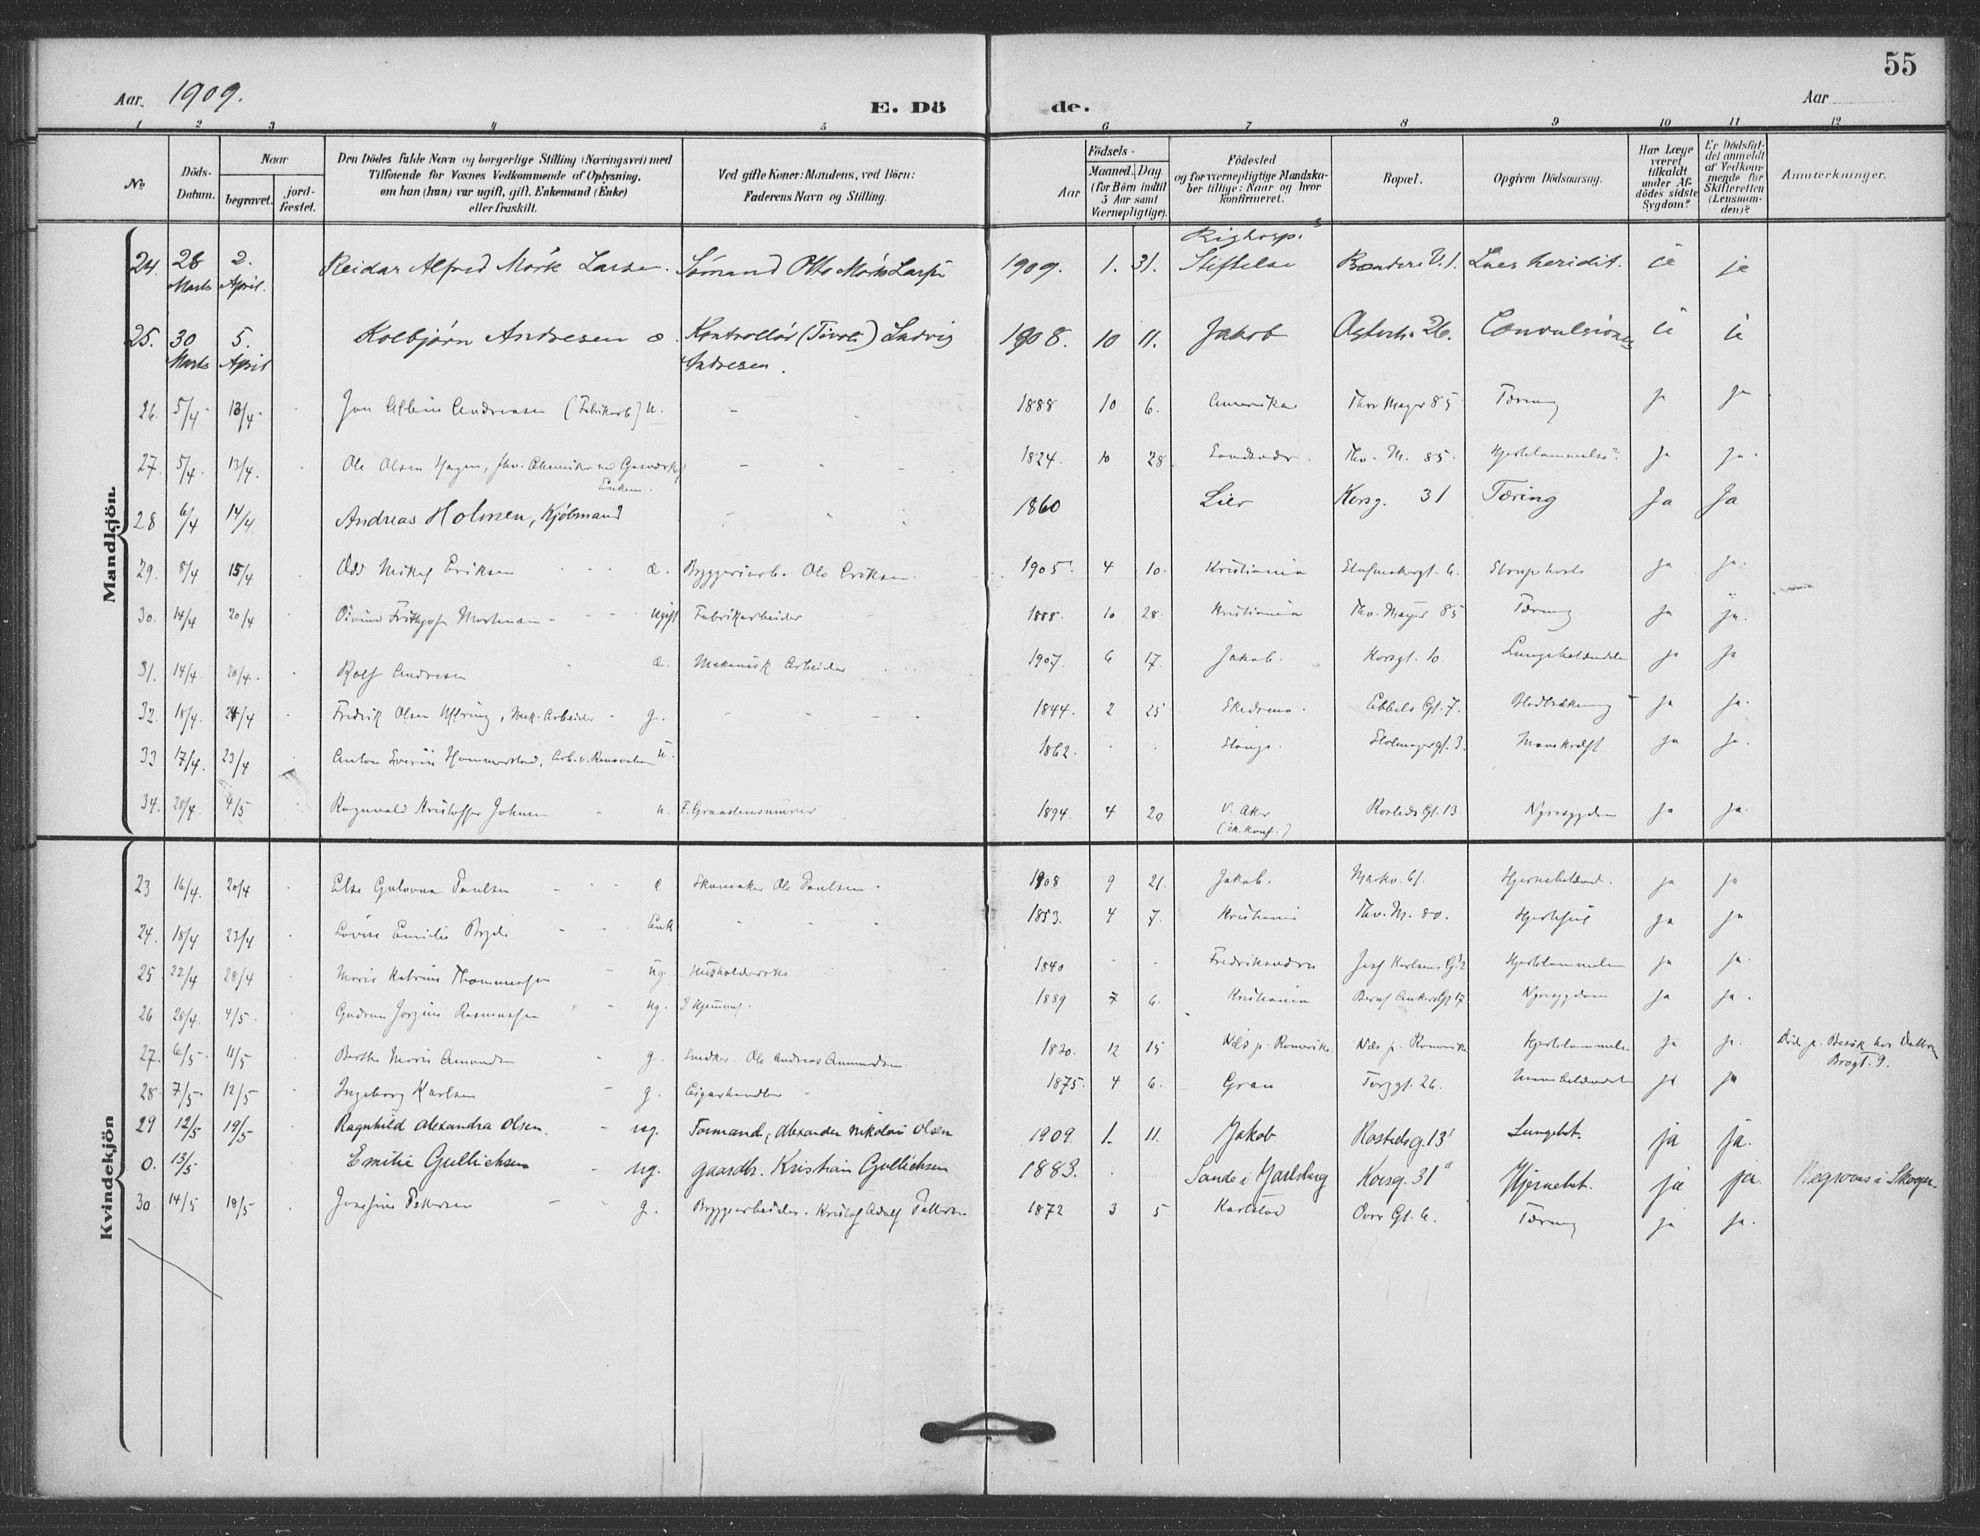 55
Aar. 1909. E. Dö de. Aar
1 2 3 4 5 6 7 8 9 10 11 12
No
Döds-Datum.
Naar
begravet.
jord-fæstet.
Den Dödes fulde Navn og borgerlige Stilling (Næringsvei) med
Tilföiende for Voxnes Vedkommende af Oplysning,
om han (hun) var ugift, gift, Enkemand (Enke)
eller fraskilt.
Ved gifte Koner: Mandens, ved Börn:
Faderens Navn og Stilling.
Födsels-
Aar
Maaned. Dag.
(for Börn indtil
5 Aar samt
Værnepligtige).
Födested
og for værnepligtige Mandska-
ber tillige: Naar og hvor
konfirmeret.
Bopæl.
Opgiven Dödsaarsag.
Har Læge
været
tilkaldt
under Af-
dödes sidste
Sygdom?
Er Dödsfal-
det anmeldt
af Vedkom-
mende for
Skifteretten
(Lensman-
den)?
Anmerkninger.
Mandkjön.
24. 28 Marts 2. April. Reidar Alfred Mörk Larsen. Sömand Otto Mörk Larsen 1909. 1. 31. Righosp. Stiftelse Lues heridit. ja ja
25. 30 Marts 5. April Kolbjörn Andresen æ. Kontrollör (Tivoli) Ludvig Andresen. 1908. 10 11. Jakob 26. Convulsiones ja ja
26. 5/4 13/4 Andreasen (Fabrikarb) u. 1888 10 6. Amerika Thv Meyer 85 Tæring ja ja
27. 5/4. 13/4. Ole Olsen Hagen, 1824. 10 28. Thv. M. 85. Hjertelammelse ja ja.
28 6/4 14/4. Andreas Holmen, Kjöbmand 1860 Lier Korsg. 31 Tæring Ja Ja
29. 8/4 15/4 Odd Eriksen æ. Bryggeriarb. Ole Eriksen. 1905 4 10. Kristiania Strupehoste ja ja.
30. 14/4 20/4 Öivind Frithjof Mortensen ugift Fabrikarbeider 1888. 10 28. Kristiania Thv. Meyer 85 Tæring ja ja.
31. 14/4 20/4. Rolf Andresen æ. Mekanisk Arbeider 1907. 6 17. Jakob. Korsgt. 10. Lungebetændelse ja ja
32. 18/4. 24/4 Fredrik Olsen Mek. Arbeider g. 1844. 2 25 Skedsmo. Ebbels Gt. 7. ja ja.
33 17/4. 23/4 Anton Severin Hammerstad, Arb. v. Renovation u. 1862. Stange. Stolmagergt. 3. ja ja.
34. 28/4. 4/5 Ragnvald Kristoffer Johnsen u. 1894. 4 20 V. Aker (ik. konf.) Rosteds Gt. 13 Nyresygdom ja ja.
Kvindekjön
23 16/4. 20/4 Else Paulsen e Skomaker Ole Paulsen. 1908 9 21. Jakob. Markv. 61. Hjernebetænd. ja ja
24. 18/4 23/4 Lovise Emilie Enk 1853. 4 7. Kristiania Thv. M. 80. Hjertefeil ja ja
25 22/4 28/4 Marie Katrine Thommessen ug. Husholderske 1840 Fredriksværn Hjertelammelse ja ja.
26 28/4. 4/5. Gudrun Rasmussen ug. 1889 7 6. Kristiania Bernt Ankers Gt 17. Nyresygdom ja ja.
27. 6/5. 11/5 Berthe Marie Amundsen g. Snedker. Ole Andreas Amundsen. 1830. 12 15 Næs p. Romerike Næs p. Romerike Hjertelammelse ja ja. Död p. Besök hos Datter Brogt. 9.
28. 7/5. 12/5 Ingeborg Karlsen g. Cigarhandler 1875. 4 6. Gran Torggt. 26. ja ja
29 12/5 19/5 Ragnhild Alexandra Olsen. ug. Formand, Alexander Nikolai Olsen 1909. 1. 11. Jakob Rostedsg. 13 Lungebet. ja ja.
0. 13/5 Emilie Gullichsen ug. gaardbr. Kristian Gullichsen 1883. Sande i Jarlsberg Korsg. 31 Hjernebet. ja ja. Begraves i Skoger.
30. 14/5 18/5 Josefine Pettersen g. Bryggearbeider. Kristof Adolf Pettersen 1872 3 5 Karlstad Övre Gt. 6. Tæring ja ja.